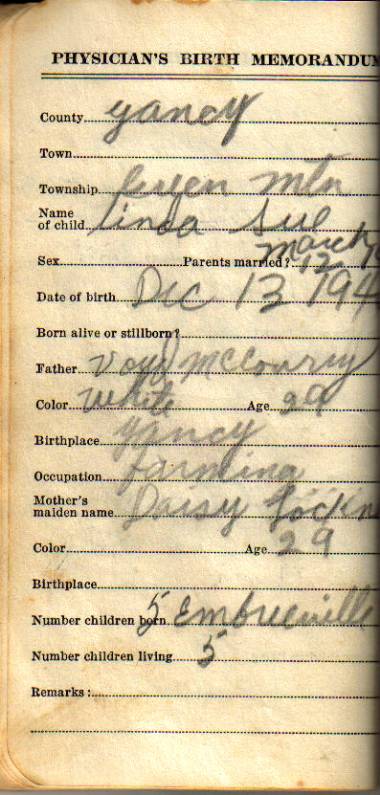 PHYSICIAN'S BIRTH MEMORANDUM
County yancy
Town
Township mtn
Name
of child linda Sue
Sex Parents married? march
12
Date of birth Dec 13 194
Born alive or stillborn?
Father mccourry
Color White Age 29
Birthplace yancy
Occupation farming
Mother's
maiden name Daisy Lockn
Color Age 29
Birthplace
Number children born 5 Embreeville
Number children living 5
Remarks: